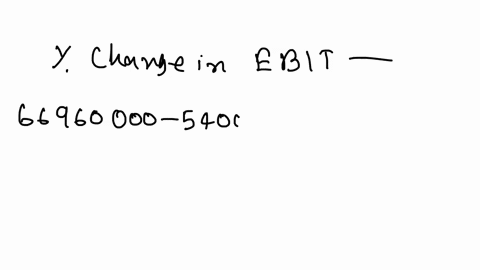 % Change in EBIT —
66960000-5400